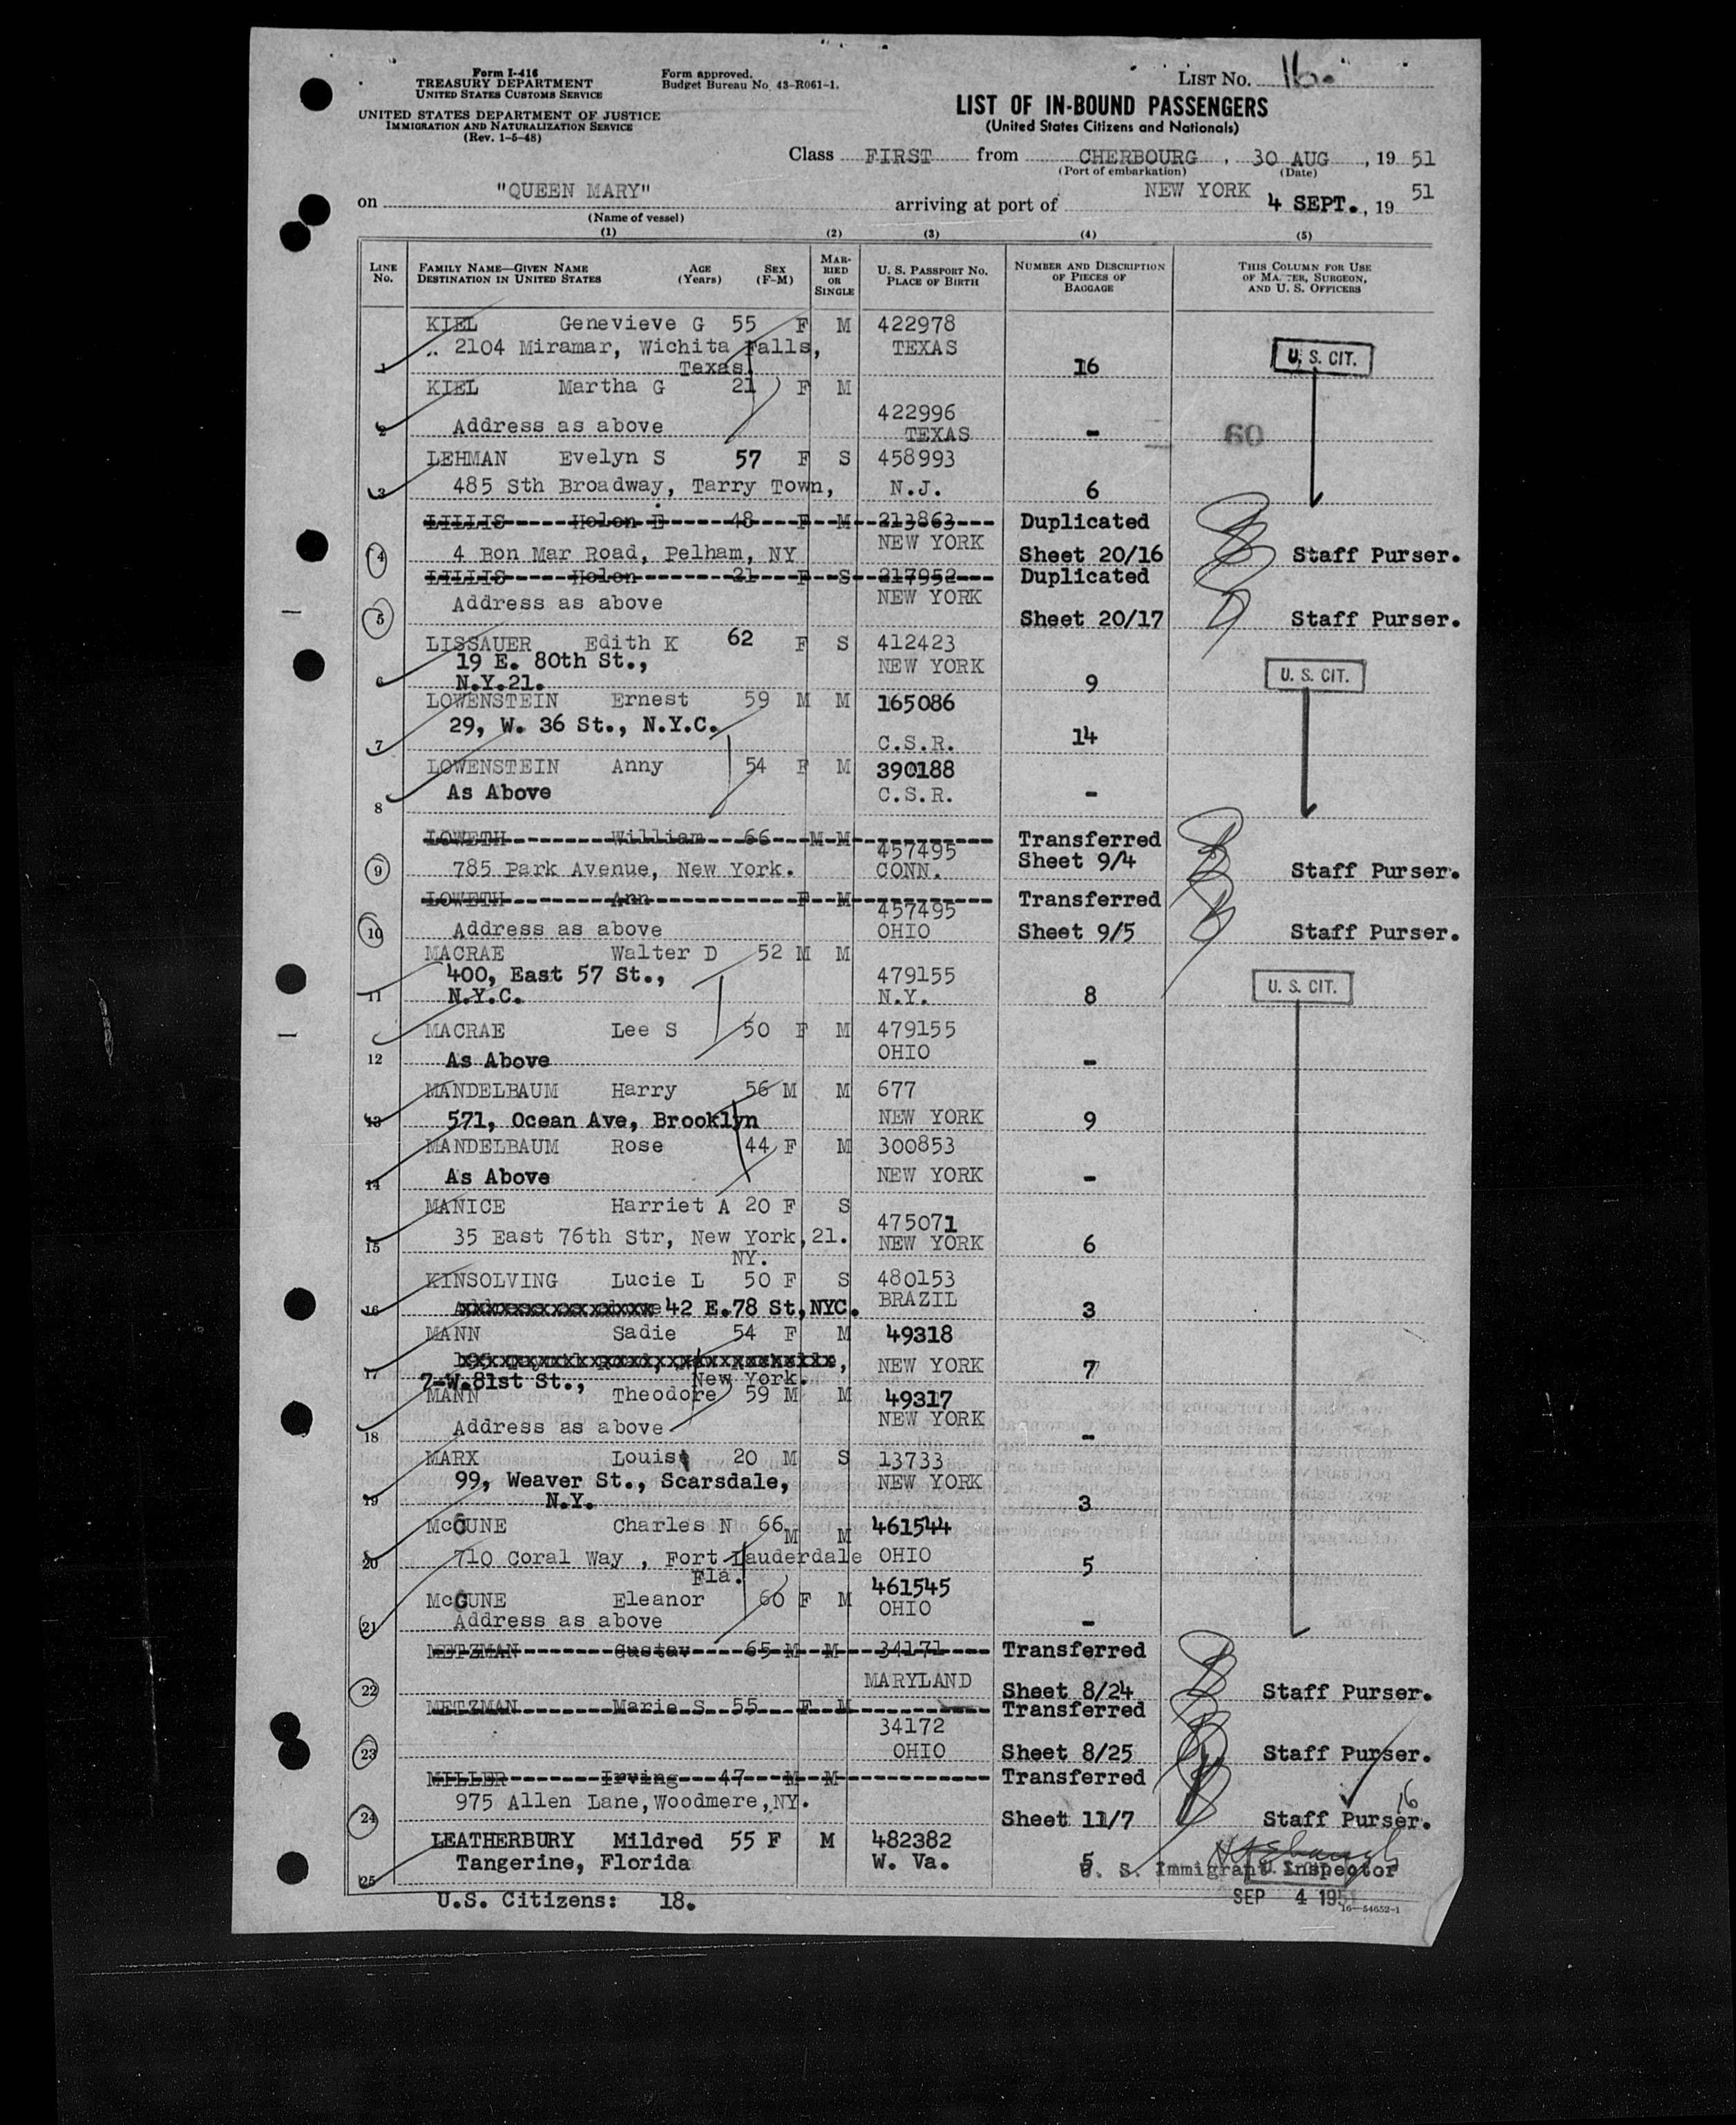 Form I-416
TREASURY DEPARTMENT
UNITED STATES CUSTOMS SERVICE
UNITED STATES DEPARTMENT OF JUSTICE
IMMIGRATION AND NATURALIZATION SERVICE
(Rev. 1-5-48)
Form approved.
Budget Bureau No. 43-R061-1.
LIST NO. 16.
LIST OF IN-BOUND PASSENGERS
(United States Citizens and Nationals)
Class FIRST from CHERBOURG, 30 AUG, 19 51
(Port of embarkation) (Date)
on "QUEEN MARY" arriving at port of NEW YORK 4 SEPT., 19 51
(Name of vessel)
(1) (2) (3) (4) (5)
LINE NO. FAMILY NAME—GIVEN NAME DESTINATION IN UNITED STATES AGE (Years) SEX (F-M) MARRIED OR SINGLE U. S. PASSPORT NO. PLACE OF BIRTH NUMBER AND DESCRIPTION OF PIECES OF BAGGAGE THIS COLUMN FOR USE OF MASTER, SURGEON, AND U. S. OFFICERS
KIEL Genevieve G 55 F M 422978
2104 Miramar, Wichita Falls, TEXAS U. S. CIT.
1 Texas 16
KIEL Martha G 21 F M
422996
2 Address as above TEXAS - 60
LEHMAN Evelyn S 57 F S 458993
3 485 Sth Broadway, Tarry Town, N.J. 6
LILLIS Helen E 48 F M 213863 Duplicated
4 4 Bon Mar Road, Pelham, NY NEW YORK Sheet 20/16 Staff Purser.
LILLIS Helen 21 F S 217952 Duplicated
Address as above NEW YORK
5 Sheet 20/17 Staff Purser.
LISSAUER Edith K 62 F S 412423
19 E. 80th St., NEW YORK U. S. CIT.
6 N.Y.21. 9
LOWENSTEIN Ernest 59 M M 165086
29, W. 36 St., N.Y.C.
7 C.S.R. 14
LOWENSTEIN Anny 54 F M 390188
8 As Above C.S.R. -
LOWETH William 66 M M 457495 Transferred
9 785 Park Avenue, New York. CONN. Sheet 9/4 Staff Purser.
LOWETH Ann F M 457495 Transferred
10 Address as above OHIO Sheet 9/5 Staff Purser.
MACRAE Walter D 52 M M
400, East 57 St., 479155 U. S. CIT.
11 N.Y.C. N.Y. 8
MACRAE Lee S 50 F M 479155
12 As Above OHIO -
MANDELBAUM Harry 56 M M 677
13 571, Ocean Ave, Brooklyn NEW YORK 9
MANDELBAUM Rose 44 F M 300853
14 As Above NEW YORK -
MANICE Harriet A 20 F S 475071
15 35 East 76th Str, New York, 21. NEW YORK 6
NY.
KINSOLVING Lucie L 50 F S 480153
16 42 E.78 St, NYC. BRAZIL 3
MANN Sadie 54 F M 49318
17 NEW YORK 7
7-W.81st St., New York.
MANN Theodore 59 M M 49317
18 Address as above NEW YORK -
MARX Louis 20 M S 13733
99, Weaver St., Scarsdale, NEW YORK
19 N.Y. 3
McGUNE Charles N 66 M M 461544
20 710 Coral Way, Fort Lauderdale OHIO 5
Fla.
McGUNE Eleanor 60 F M 461545
21 Address as above OHIO -
METZMAN Gustav 65 M M 34171 Transferred
22 MARYLAND Sheet 8/24 Staff Purser.
METZMAN Marie S 55 F M Transferred
34172
23 OHIO Sheet 8/25 Staff Purser.
MILLER Irving 47 M M Transferred
975 Allen Lane, Woodmere, NY.
24 Sheet 11/7 Staff Purser.
16
LEATHERBURY Mildred 55 F M 482382
25 Tangerine, Florida W. Va. 5
U. S. Immigrant Inspector
U.S. Citizens: 18.
SEP 4 1951
16—54652-1